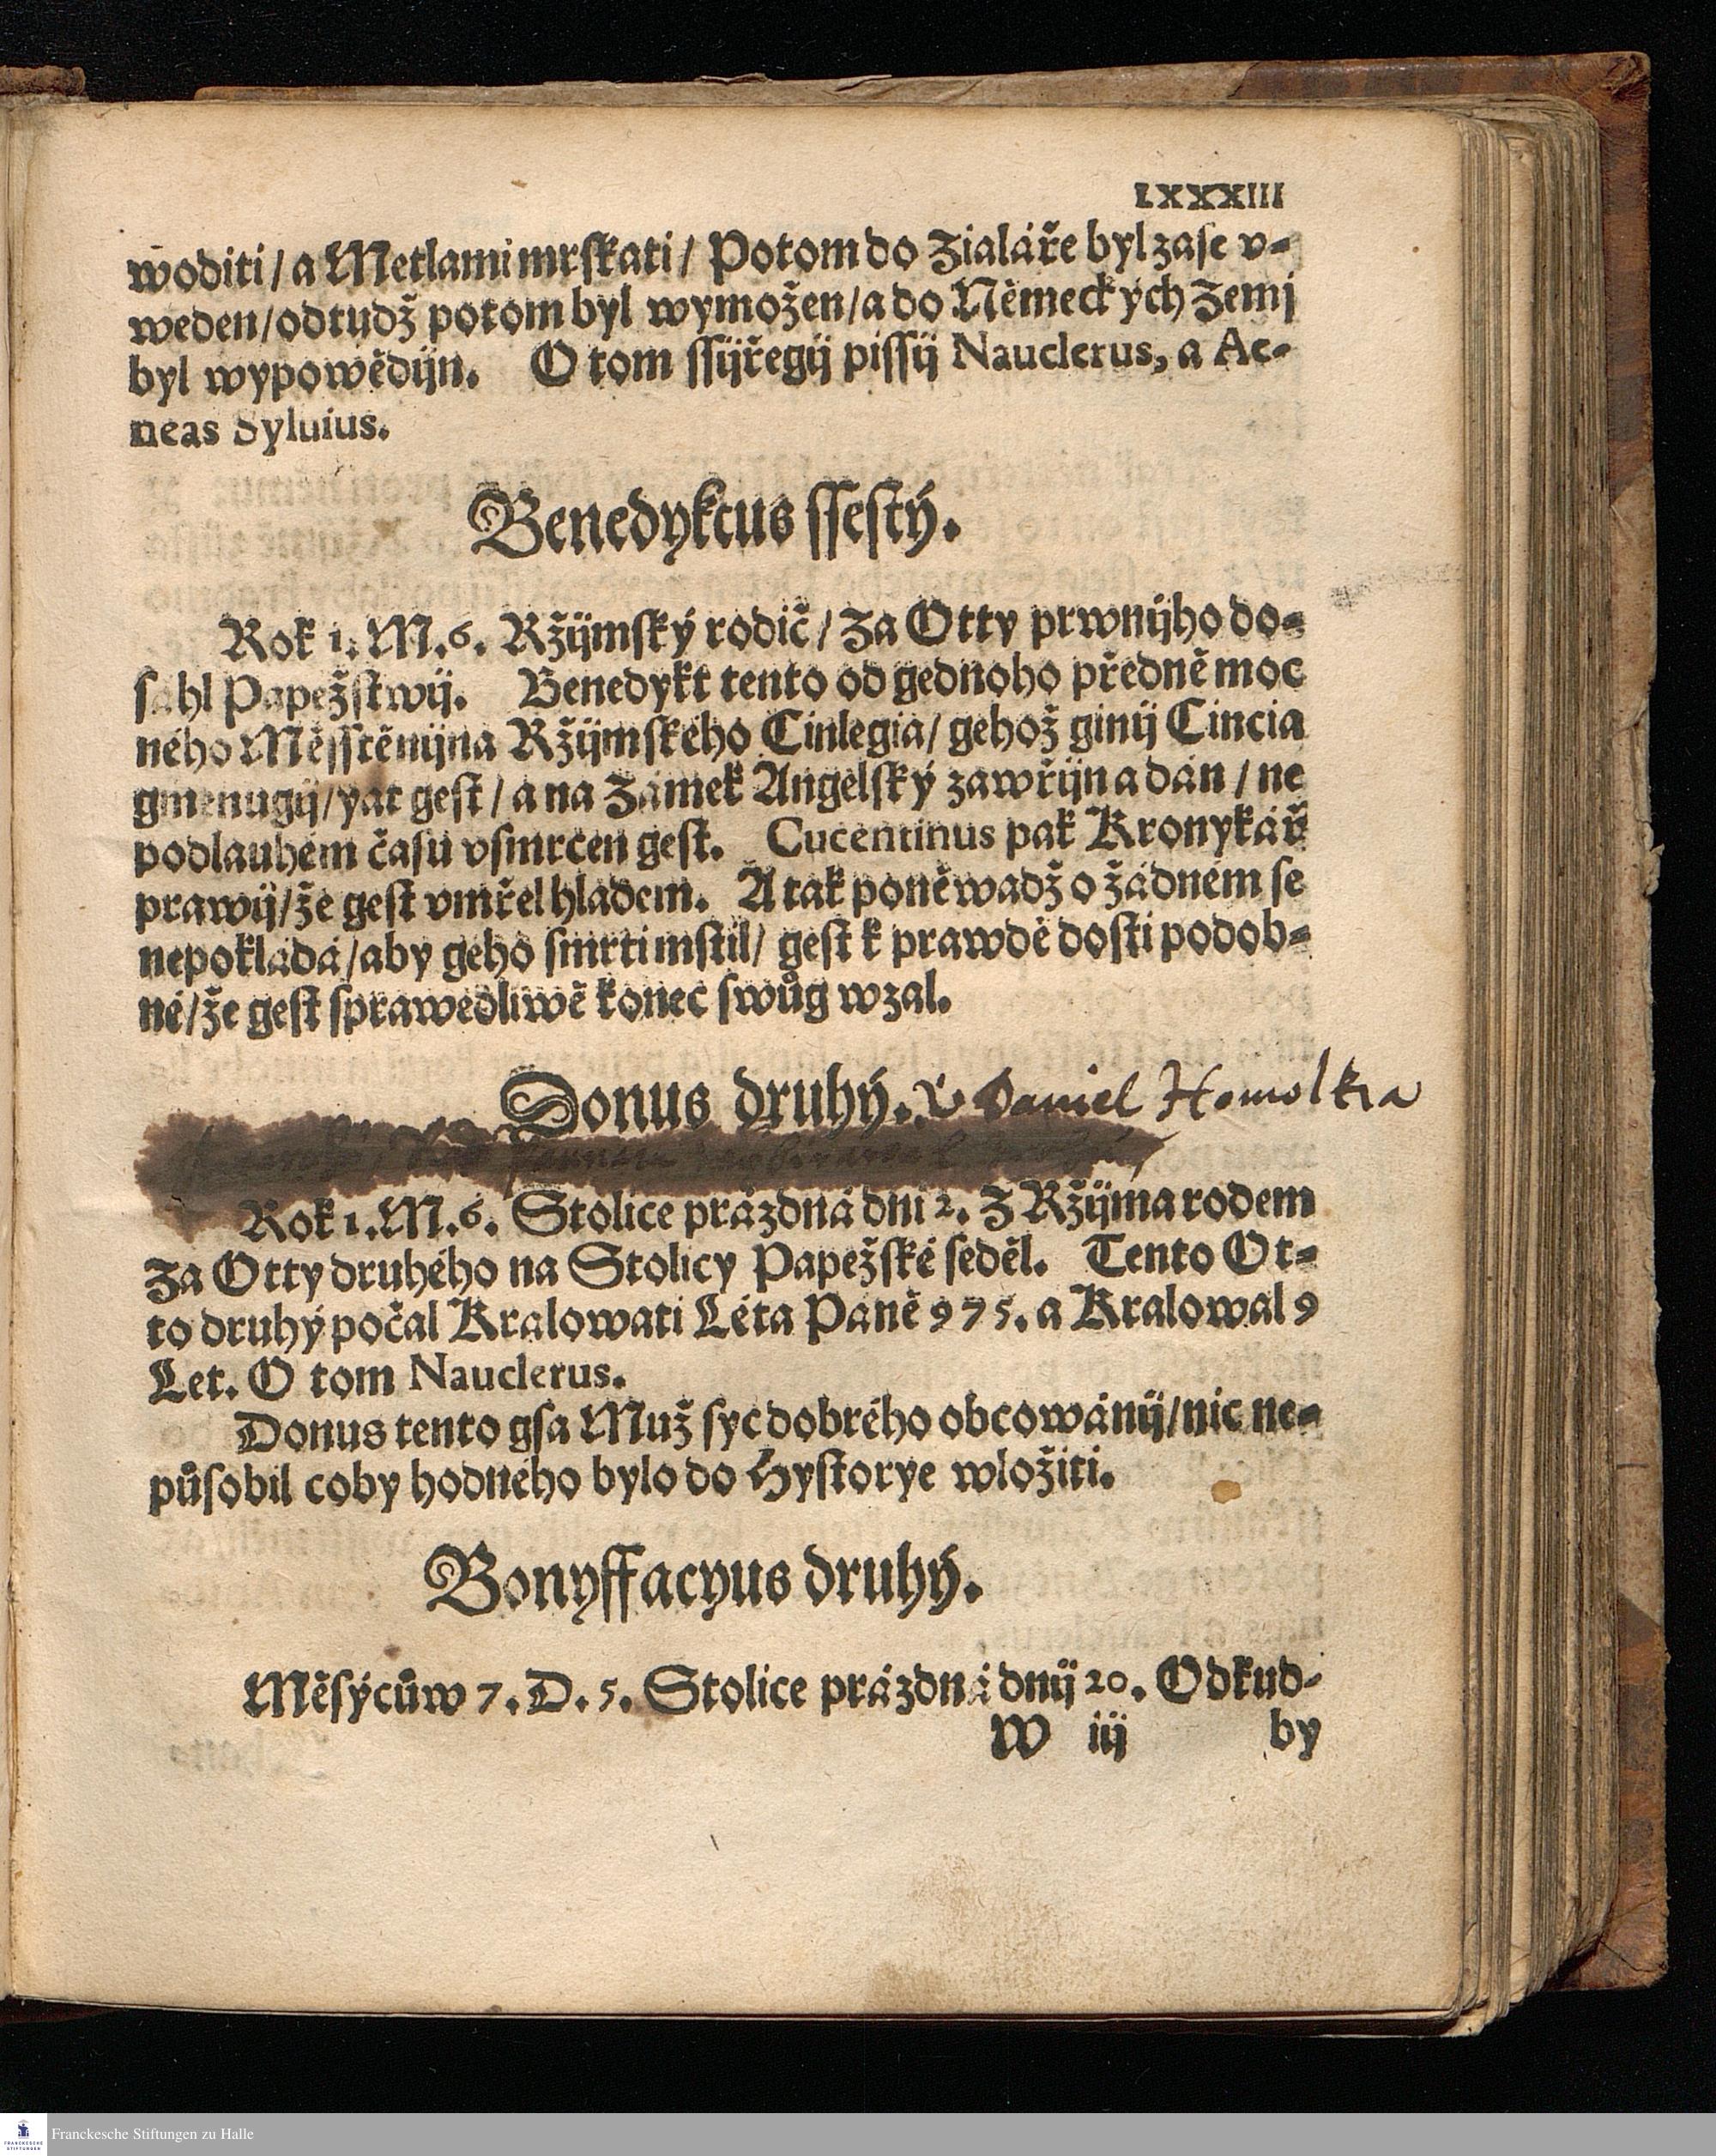 LXXXIII
woditi / a Metlami mrſkati / Potom do Žialáře byl zaſe v⸗
weden / odtudž potom byl wymožen / a do Německých Zemj
byl wypowědijn. O tom ſſijřegij piſſij Nauclerus, a Ae⸗
neas Syluius.
Benedyktus ſſeſtý.
Rok 1. M. 6. Ržijmſký rodič / Za Otty prwnijho do⸗
ſáhl Papežſtwij. Benedykt tento od gednoho předně moc
ného Měſſtěnijna Ržijmſkého Cinlegia / gehož ginij Cincia
gmenugij / yat geſt / a na Zámek Angelſký zawřijn a dán / ne
podlauhém čaſu vſmrcen geſt. Cucentinus pak Kronykář
prawij / že geſt vmřel hladem. A tak poněwadž o žádném ſe
nepokládá / aby geho ſmrti mſtil / geſt k prawdě doſti podob⸗
né / že geſt ſprawedliwě konec ſwůg wzal.
Donus druhý. Daniel Homolka
Rok 1. M. 6. Stolice prázdná dni 2. Z Ržijma rodem
za Otty druhého na Stolicy Papežſké ſeděl. Tento Ot⸗
to druhý počal Kralowati Léta Páně 975. a Kralowal 9
Let. O tom Nauclerus.
Donus tento gſa Muž ſyc dobrého obcowánij / nic ne⸗
půſobil coby hodného bylo do Hyſtorye wložiti.
Bonyffacyus druhý.
Měſýcůw 7. D. 5. Stolice prázdná dnij 20. Odkud⸗
W iij by
Franckesche Stiftungen zu Halle